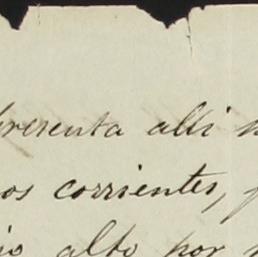 presenta alli
os corrientes,
io alto por